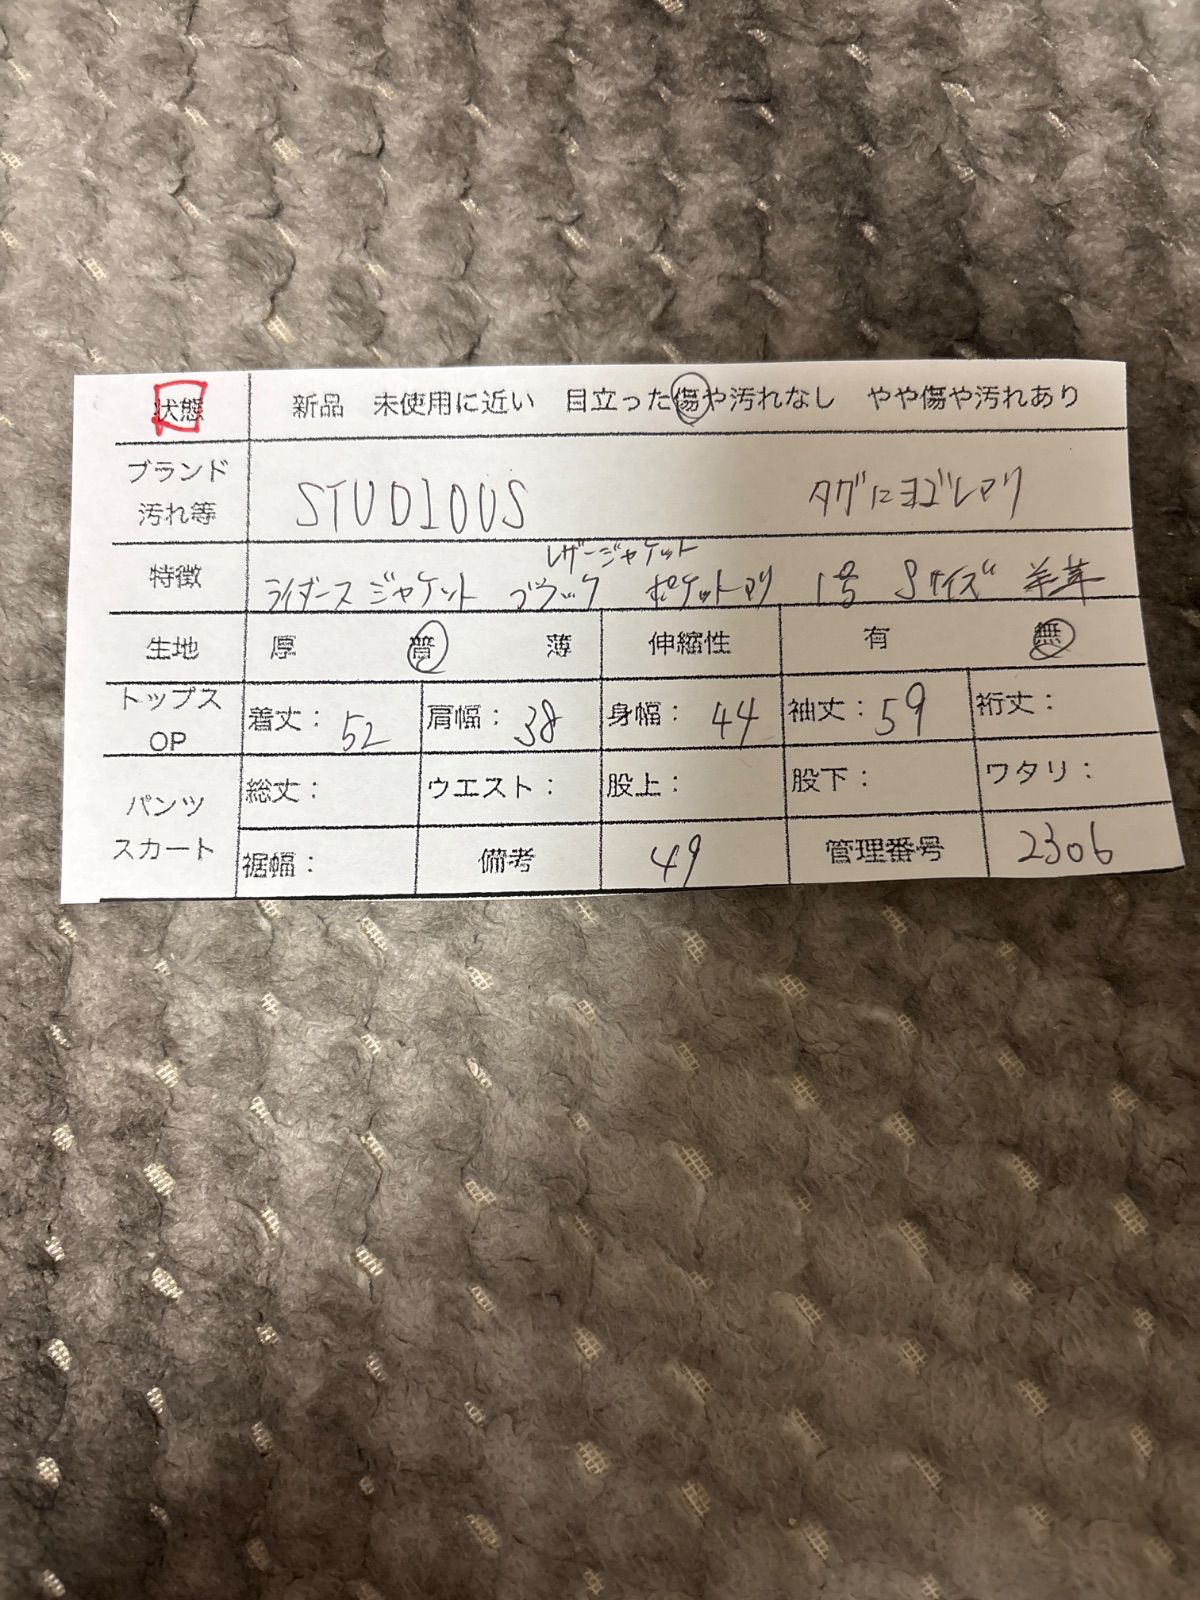 状態 新品 未使用に近い 目立った傷や汚れなし やや傷や汚れあり
ブランド
汚れ等 STUDIOUS タグにヨゴレアリ
レザージャケット
特徴 ライダースジャケット ブラック ポケットアリ 1号 Sサイズ 羊革
生地 厚 普 薄 伸縮性 有 無
トップス
OP 着丈：52 肩幅：38 身幅：44 袖丈：59 裄丈：
パンツ
スカート 総丈： ウエスト： 股上： 股下： ワタリ：
裾幅： 備考 49 管理番号 2306